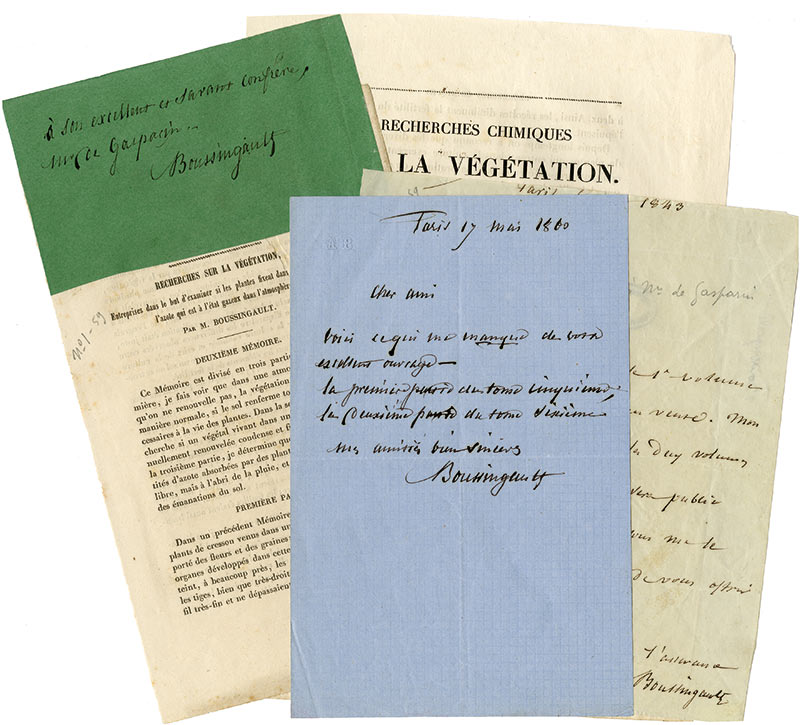 à son excellent et savant confrère,
Mr de Gasparin.
Boussingault
RECHERCHES CHIMIQUES
LA VÉGÉTATION.
RECHERCHES SUR LA VÉGÉTATION,
Entreprises dans le but d'examiner si les plantes fixent dans
l'azote qui est à l'état gazeux dans l'atmosphère
PAR M. BOUSSINGAULT.
DEUXIÈME MÉMOIRE.
Ce Mémoire est divisé en trois partie
mière, je fais voir que dans une atmo
qu'on ne renouvelle pas, la végétation
manière normale, si le sol renferme to
cessaires à la vie des plantes. Dans la se
cherche si un végétal vivant dans un
nuellement renouvelée condense et fi
la troisième partie, je détermine que
tités d'azote absorbées par des plant
libre, mais à l'abri de la pluie, et
des émanations du sol.
PREMIÈRE PA
Dans un précédent Mémoire
plants de cresson venus dans un
porté des fleurs et des graines;
organes développés dans cette
teint, à beaucoup près, les
les tiges, bien que très-droit
fil très-fin et ne dépassaient
n°1-59
Paris 17 mai 1860
Cher ami
Voici ce qui me manque de votre
excellent ouvrage—
la première partie du tome cinquième;
la deuxième partie du tome sixième
mes amitiés bien sincères
Boussingault
Paris
1843
Mr de Gasparin
1er volume
en vente. Mon
les deux volumes
sera publié
vous me le
de vous offrir
l'assurance
Boussingault